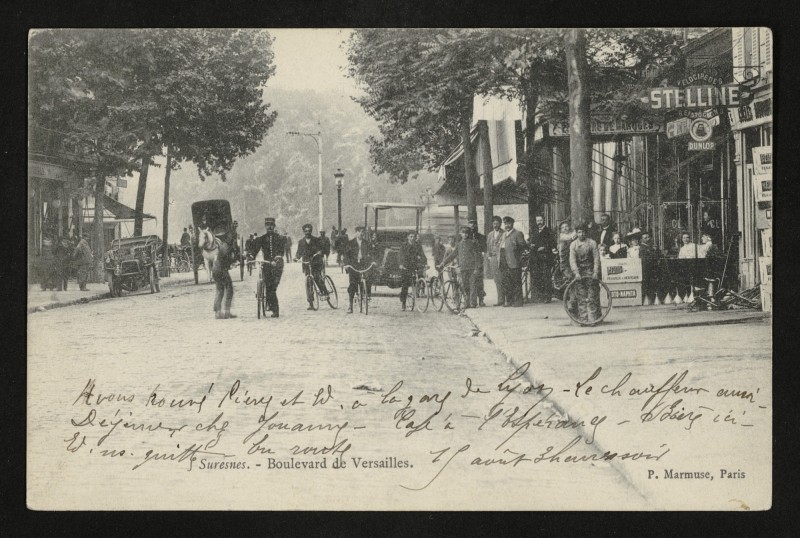 VELOCIPEDES
STELLINE
DUNLOP
Avons trouvé Pierre et Ed. a la gare de Lyon - Le chauffeur aussi -
Déjeuner chez Jouanny - Café à l'Espérance - Soirée ici -
Ed. ns. quitte - En route
15 août 3 heures soir
Suresnes. - Boulevard de Versailles.
P. Marmuse, Paris